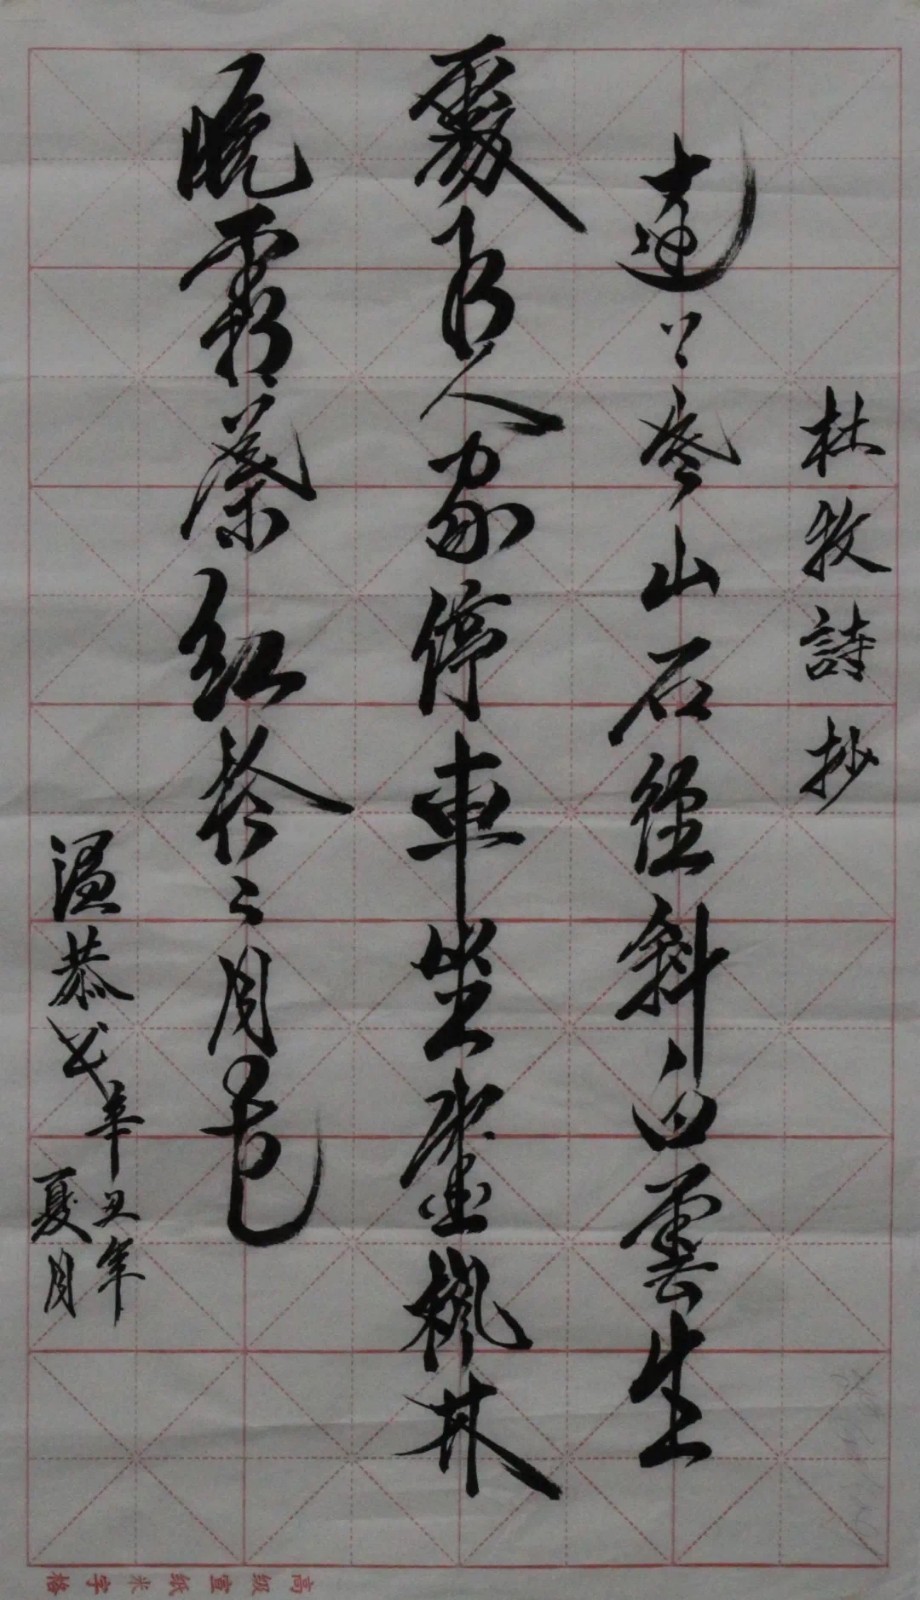 杜牧詩抄
遠上寒山石徑斜白雲生
處有人家停車坐愛楓林
晚霜葉紅於二月花
温恭
辛丑年
夏月
高级宣纸米字格